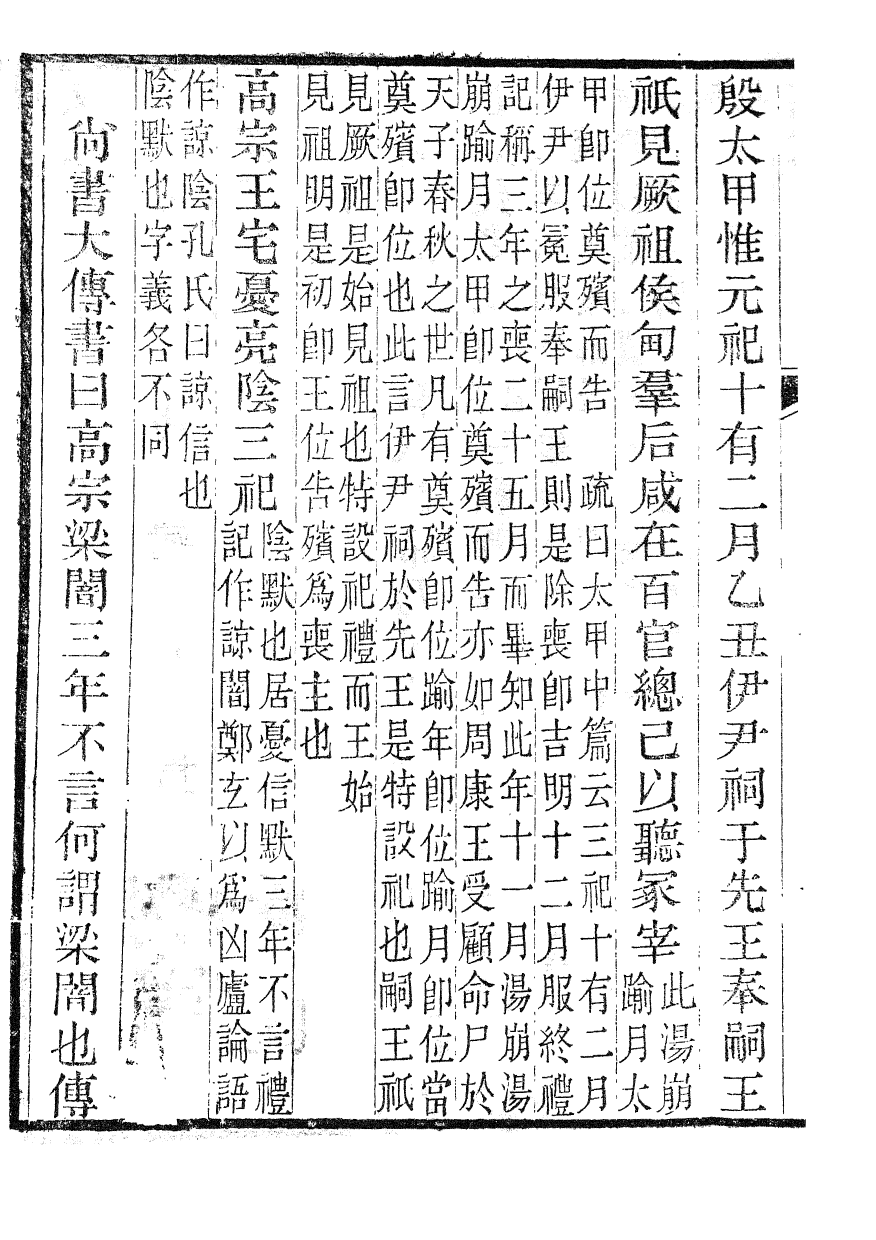 殷太甲惟元祀十有二月乙丑伊尹祠于先王奉嗣王
祗見厥祖侯甸羣后咸在百官總己以聽冢宰此湯崩
踰月太
甲卽位奠殯而告　疏曰太甲中篇云三祀十有二月
伊尹以冕服奉嗣王則是除喪卽吉明十二月服終禮
記稱三年之喪二十五月而畢知此年十一月湯崩湯
崩踰月太甲卽位奠殯而告亦如周康王受顧命尸於
天子春秋之世凡有奠殯卽位踰年卽位踰月卽位當
奠殯卽位也此言伊尹祠於先王是特設祀也嗣王祗
見厥祖是始見祖也特設祀禮而王始
見祖明是初卽王位告殯爲喪主也
高宗王宅憂亮陰三祀陰默也居憂信默三年不言禮
記作諒闇鄭玄以爲凶廬論語
作諒陰孔氏曰諒信也
陰默也字義各不同
尙書大傳書曰高宗梁闇三年不言何謂梁闇也傳